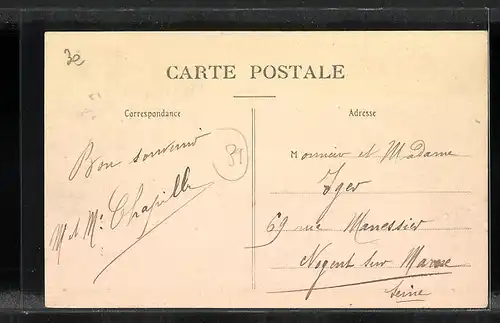 3e
CARTE POSTALE
Correspondance
Adresse
Bon souvenir
M et Me Chapelle
39
Monsieur et Madame
Iger
69 rue Manessier
Nogent sur Marne
Seine